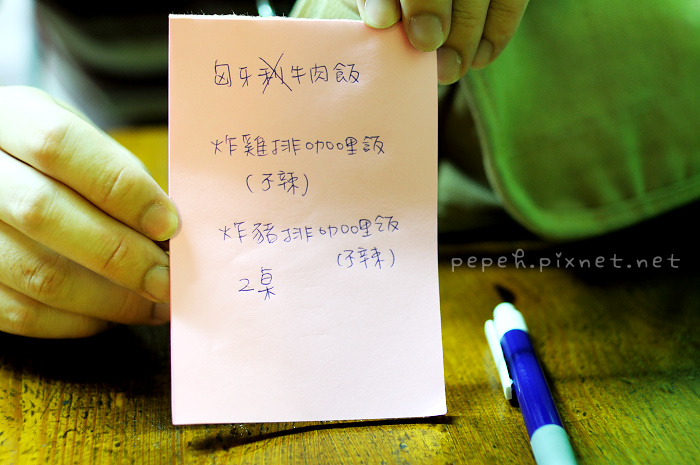 匈牙牛肉飯
炸雞排咖哩飯
(不辣)
炸豬排咖哩飯
(不辣)
2桌
pepeh.pixnet.net